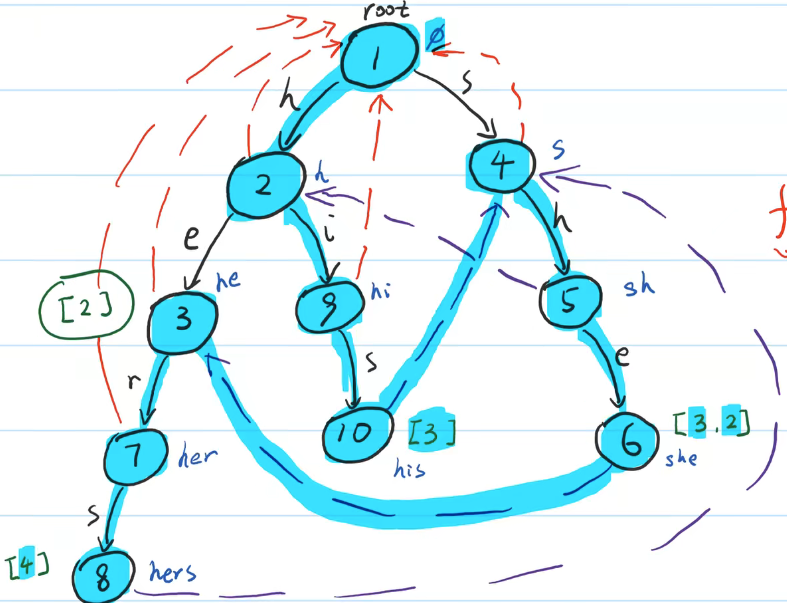 root
1
ø
h
s
2
h
4
s
e
i
h
[2]
3
he
9
hi
5
sh
r
s
e
7
her
10
[3]
his
6
[3.2]
she
s
[4]
8
hers
f